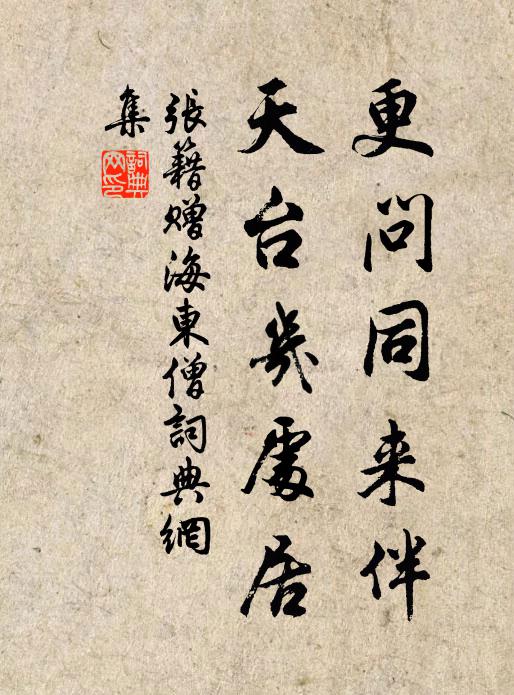 更问同来伴
天台幾處居
張籍贈海東僧詞典網
集
詞典
网印